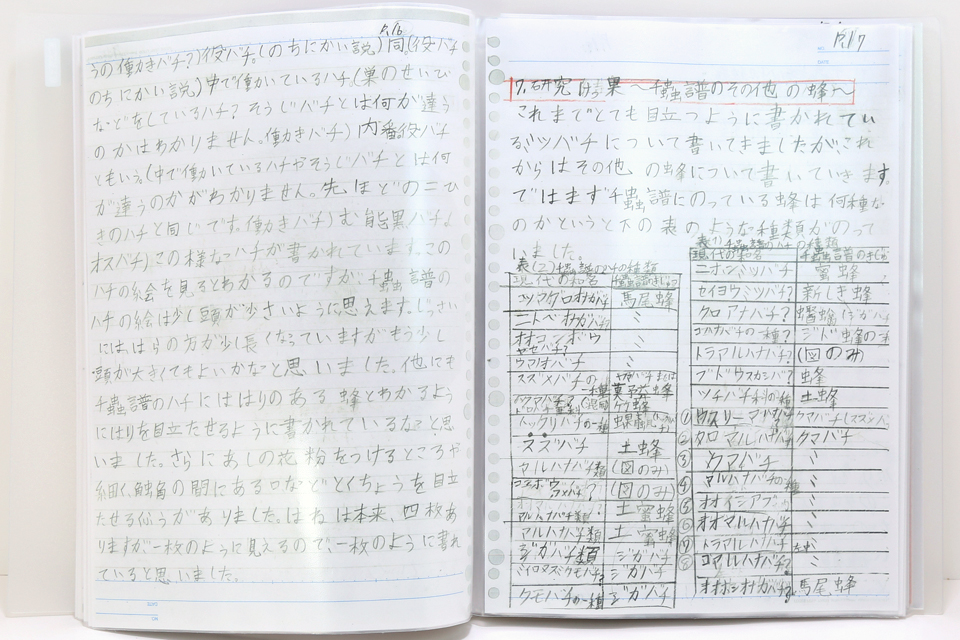 P.16
うの働きバチ?)役バチ。(のちにかい説)同。(役バチ
のちにかい説)中で働いているハチ(巣のせいび
などをしているハチ?そうじバチとは何が違う
のかはわかりません。働きバチ)内番役バチ
ともいう。(中で働いているハチやそうじバチとは何
が違うのかがわかりません。先ほどの二ひ
きのハチと同じです。働きバチ)む能黒バチ。(
オスバチ)この様なハチが書かれています。この
ハチの絵を見るとわかるのですが、千蟲譜の
ハチの絵は少し頭が小さいように思えます。じっさい
には、はらの方が少し長くなっていますがもう少し
頭が大きくてもよいかなと思いました。他にも
千蟲譜のハチにははりのある蜂とわかるよう
にはりを目立たせるように書かれているなと思
いました。さらにあしの花粉をつけるところや
細く、触角の間にある口などとくちょうを目立
たせる
がありました。はねは本来、四枚あ
りますが、一枚のように見えるので、一枚のように書れ
ていると思いました。
P.17
7.研究けっ果〜千蟲譜のその他の蜂〜
これまでとても目立つように書かれてい
るミツバチについて書いてきましたが、これ
からはその他の蜂について書いていきます。
ではまず千蟲譜にのっている蜂は何種な
のかというと下の表のような種類がのって
いました。
表(2)千蟲譜のハチの種類
現代の和名
ツマグロオナガバチ 馬尾蜂
ニトベオナガバチ? 〃
オオコンボウ
ヤセバチ? 〃
ウマノオバチ 〃
スズメバチの一種
トックリバチの一種
スズバチ 土蜂
マルハナバチ類 (図のみ)
(図のみ)
マルハナバチ類 土蜜蜂
マルハナバチ類 土蜜蜂
ジガバチ類 ジガバチ
ジガバチ
クモバチの一種 ジガバチ
千蟲譜のハチの種類
現代の和名
ニホンミツバチ 蜜蜂
セイヨウミツバチ? 新しき蜂
クロアナバチ?
トラマルハナバチ? (図のみ)
ブドウスカシバ? 蜂
ツチバチ科の種 土蜂
①
②クロマルハナバチ クマバチ
③クマバチ 〃
④マルハナバチの種 〃
⑤オオイシアブ 〃
⑥オオマルハナバチ 〃
⑦トラマルハナバチ
⑧コマルハナバチ? 〃
オオホシオナガバチ? 馬尾蜂